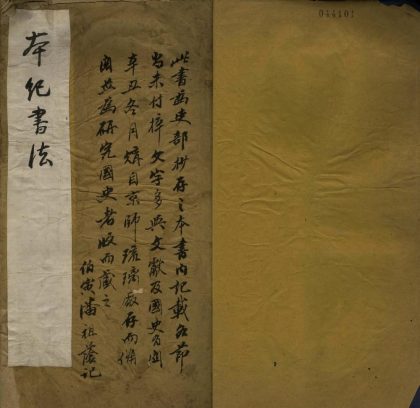 044101
此書為史部抄存之本書内記載各節
尚未付梓文字多與文獻及國史有関
辛丑冬月購自京師琉璃廠存而備
為研究國史者收而藏之
伯寅潘祖蔭記
本纪書法